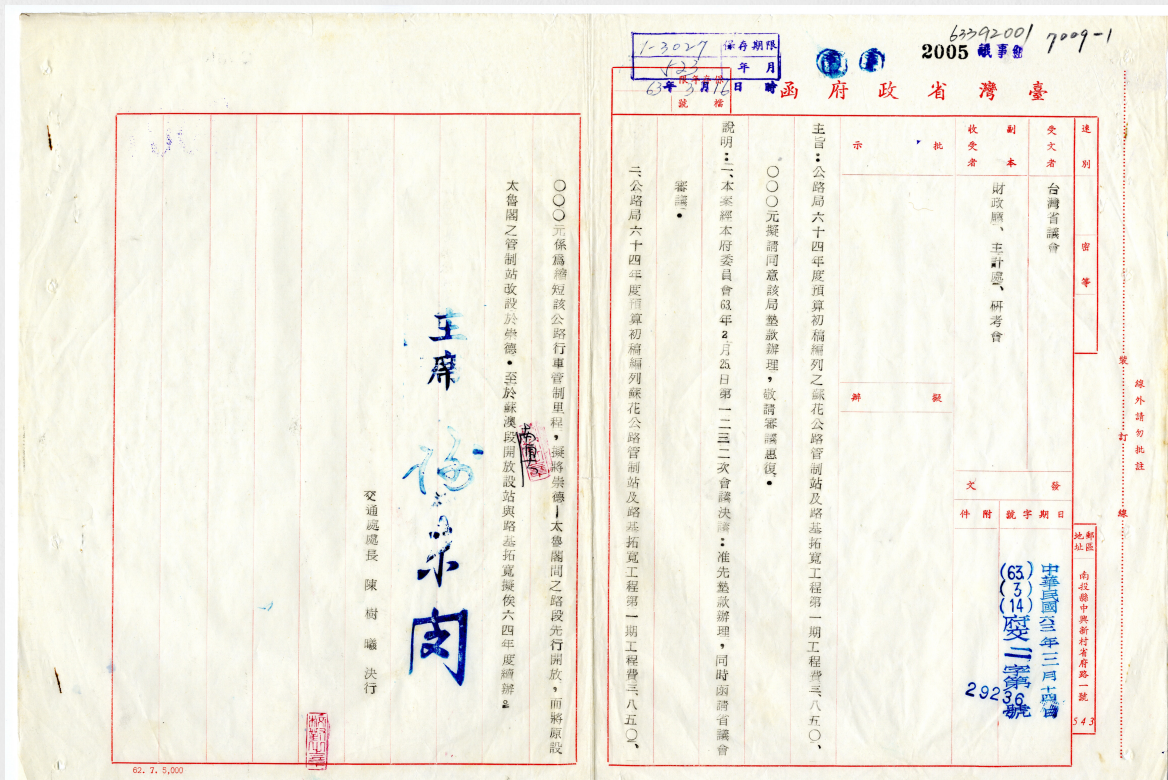 63392001
7009-1
2005 議事
保存期限
1-3027
523
年 月
63年3月16日 時
保存年限
檔號
臺灣省政府函
線外請勿批註
裝訂線
速別
密等
郵區
地址
南投縣中興新村省府路一號
543
受文者
台灣省議會
副本
收受者
財政廳、主計處、研考會
發文
日期字號
附件
中華民國六三年三月十四日
(63.)(3)(14)府交二字第29236號
批示
擬辦
主旨：公路局六十四年度預算初稿編列之蘇花公路管制站及路基拓寬工程第一期工程費三、八五〇、
〇〇〇元擬請同意該局墊款辦理，敬請審議惠復。
說明：一、本案經本府委員會63.年2月25.日第一二三二次會議決議：准先墊款辦理，同時函請省議會
審議。
二、公路局六十四年度預算初稿編列蘇花公路管制站及路基拓寬工程第一期工程費三、八五〇、
〇〇〇元係爲縮短該公路行車管制里程，擬將崇德—太魯閣間之路段先行開放，而將原設
太魯閣之管制站改設於崇德。至於蘇澳段開放設站與路基拓寬擬俟六四年度續辦。
主席
交通處處長 陳樹曦 決行
62. 7. 5,000